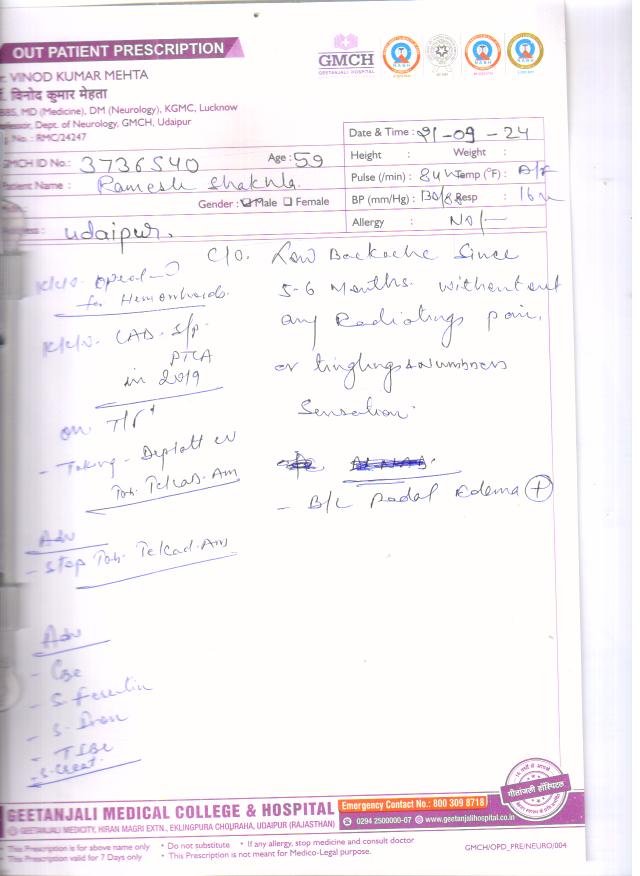 OUT PATIENT PRESCRIPTION
GMCH
GEETANJALI HOSPITAL
VINOD KUMAR MEHTA
विनोद कुमार मेहता
MD (Medicine), DM (Neurology), KGMC, Lucknow
Dept. of Neurology, GMCH, Udaipur
No. - RMC/24247
Date & Time : 21-09-24
GMCH ID No.: 3736540 Age : 59
Height : Weight :
Patient Name : Ramesh
Pulse (/min) : 84 Temp (°F) :
Gender : ☑ Male ☐ Female
BP (mm/Hg) : 130/88 Resp : 16
Allergy : No/—
Udaipur.
C/O. Low Backache Since
5-6 Months. without
any Radiatings pain,
or tinglings & Numbness
Sensation.
- B/L Pedal Edema (+)
for Hemorrhoids.
CAD. S/p.
PTCA
in 2019
on T/t
- Taking - Deplatt CV
Tab. Telcad. Am
Adv
- Stop Tab. Telcad. Am
Adv
- CBC
- S. Ferritin
- S. Iron
- TIBC
- S. Creat.
गीतांजली हॉस्पिटल
GEETANJALI MEDICAL COLLEGE & HOSPITAL
Emergency Contact No.: 800 309 8718
GEETANJALI MEDICITY, HIRAN MAGRI EXTN., EKLINGPURA CHOURAHA, UDAIPUR (RAJASTHAN)
0294 2500000-07 www.geetanjalihospital.co.in
• This Prescription is for above name only • Do not substitute • If any allergy, stop medicine and consult doctor
• This Prescription valid for 7 Days only • This Prescription is not meant for Medico-Legal purpose.
GMCH/OPD_PRE/NEURO/004